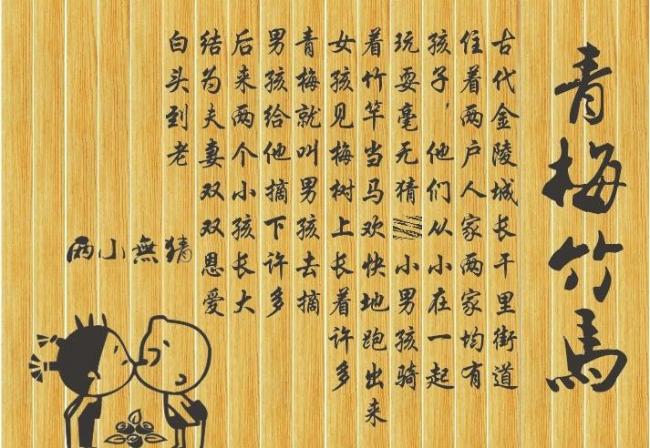 青梅竹馬
古代金陵城长干里街道
住着两户人家两家均有
孩子，他们从小在一起
玩耍毫无猜 小男孩骑
着竹竿当马欢快地跑出来
女孩见梅树上长着许多
青梅就叫男孩去摘
男孩给他摘下许多
后来两个小孩长大
结为夫妻双双恩爱
白头到老
两小無猜